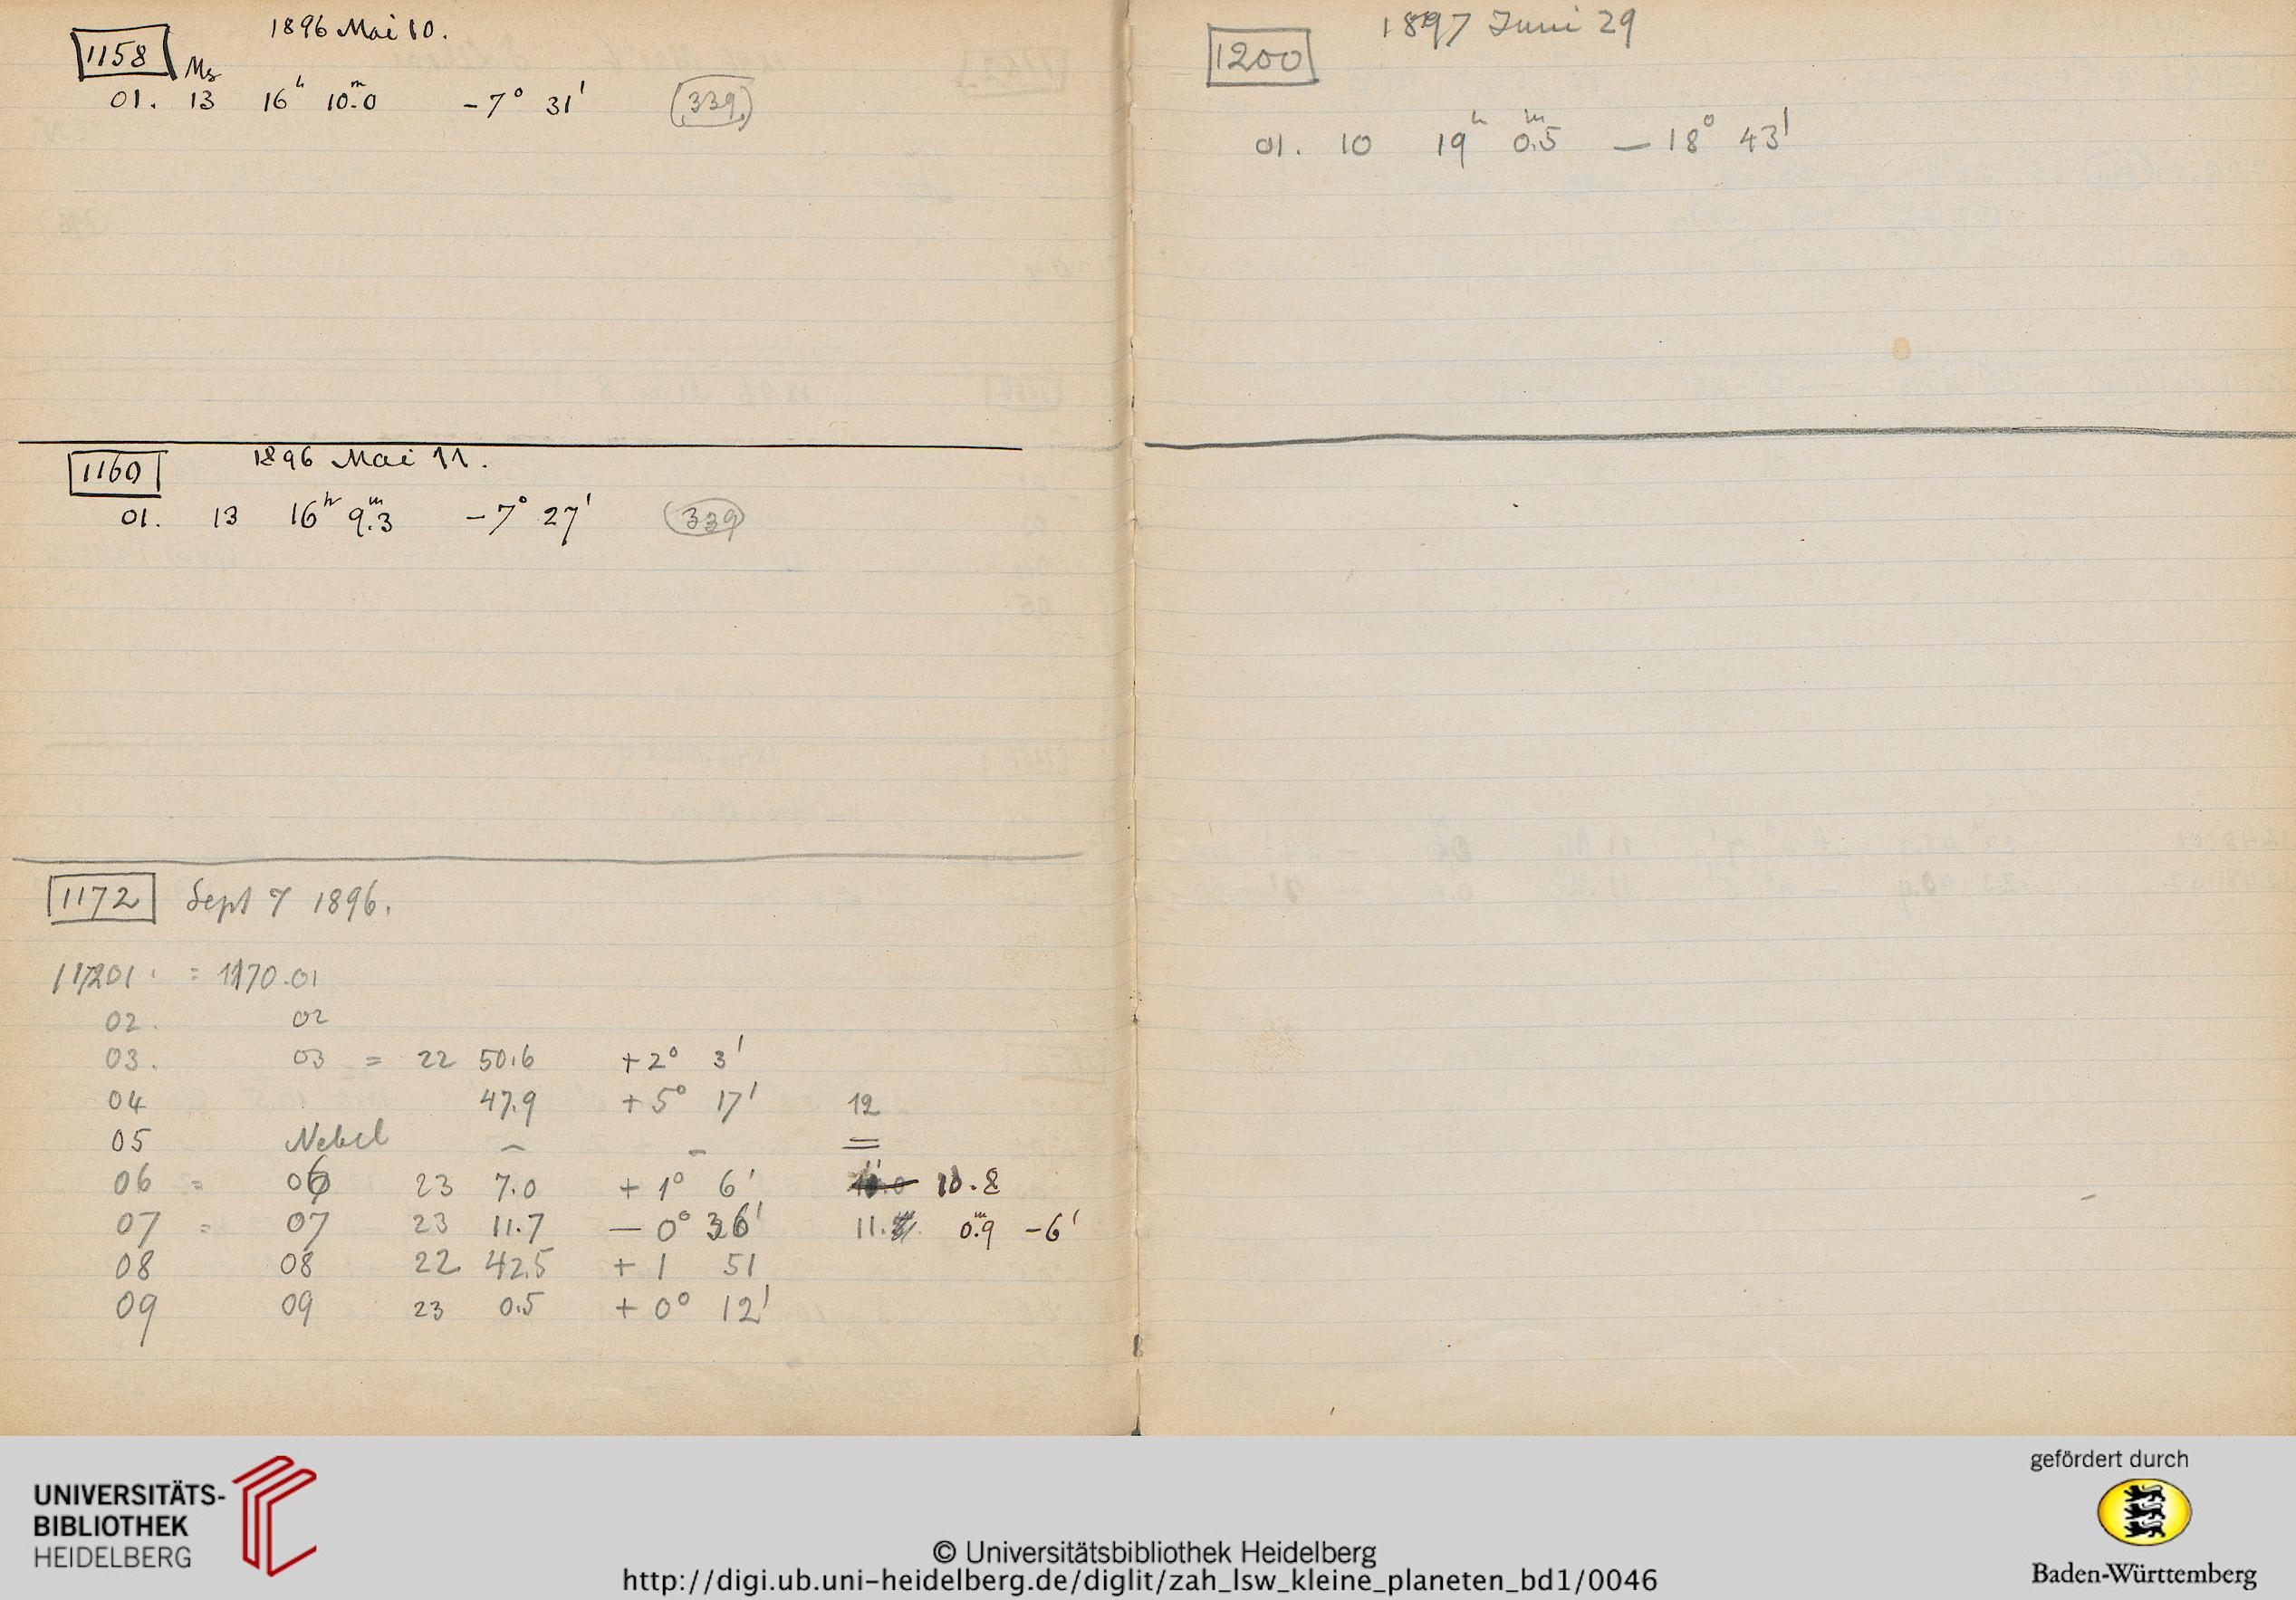 1158 1896 Mai 10.
Mg
01. 13 16h 10m.0 -7° 31' (339)
1160 1896 Mai 11.
01. 13 16h 9m.3 -7° 27' (339)
1172 Sept 7 1896.
117201. = 1170.01
02. 02
03. 03 = 22 50.6 +2° 3'
04 47.9 +5° 17' 12
05 Nebel – – =
06 = 06 23 7.0 +1° 6' 10.8
07 = 07 23 11.7 —0° 36' 11. 0m.9 -6'
08 08 22 42.5 +1 51
09 09 23 0.5 +0° 12'
1200 1897 Juni 29
01. 10 19h 0m.5 —18° 43'
UNIVERSITÄTS-
BIBLIOTHEK
HEIDELBERG
© Universitätsbibliothek Heidelberg
http://digi.ub.uni-heidelberg.de/diglit/zah_lsw_kleine_planeten_bd1/0046
gefördert durch
Baden-Württemberg